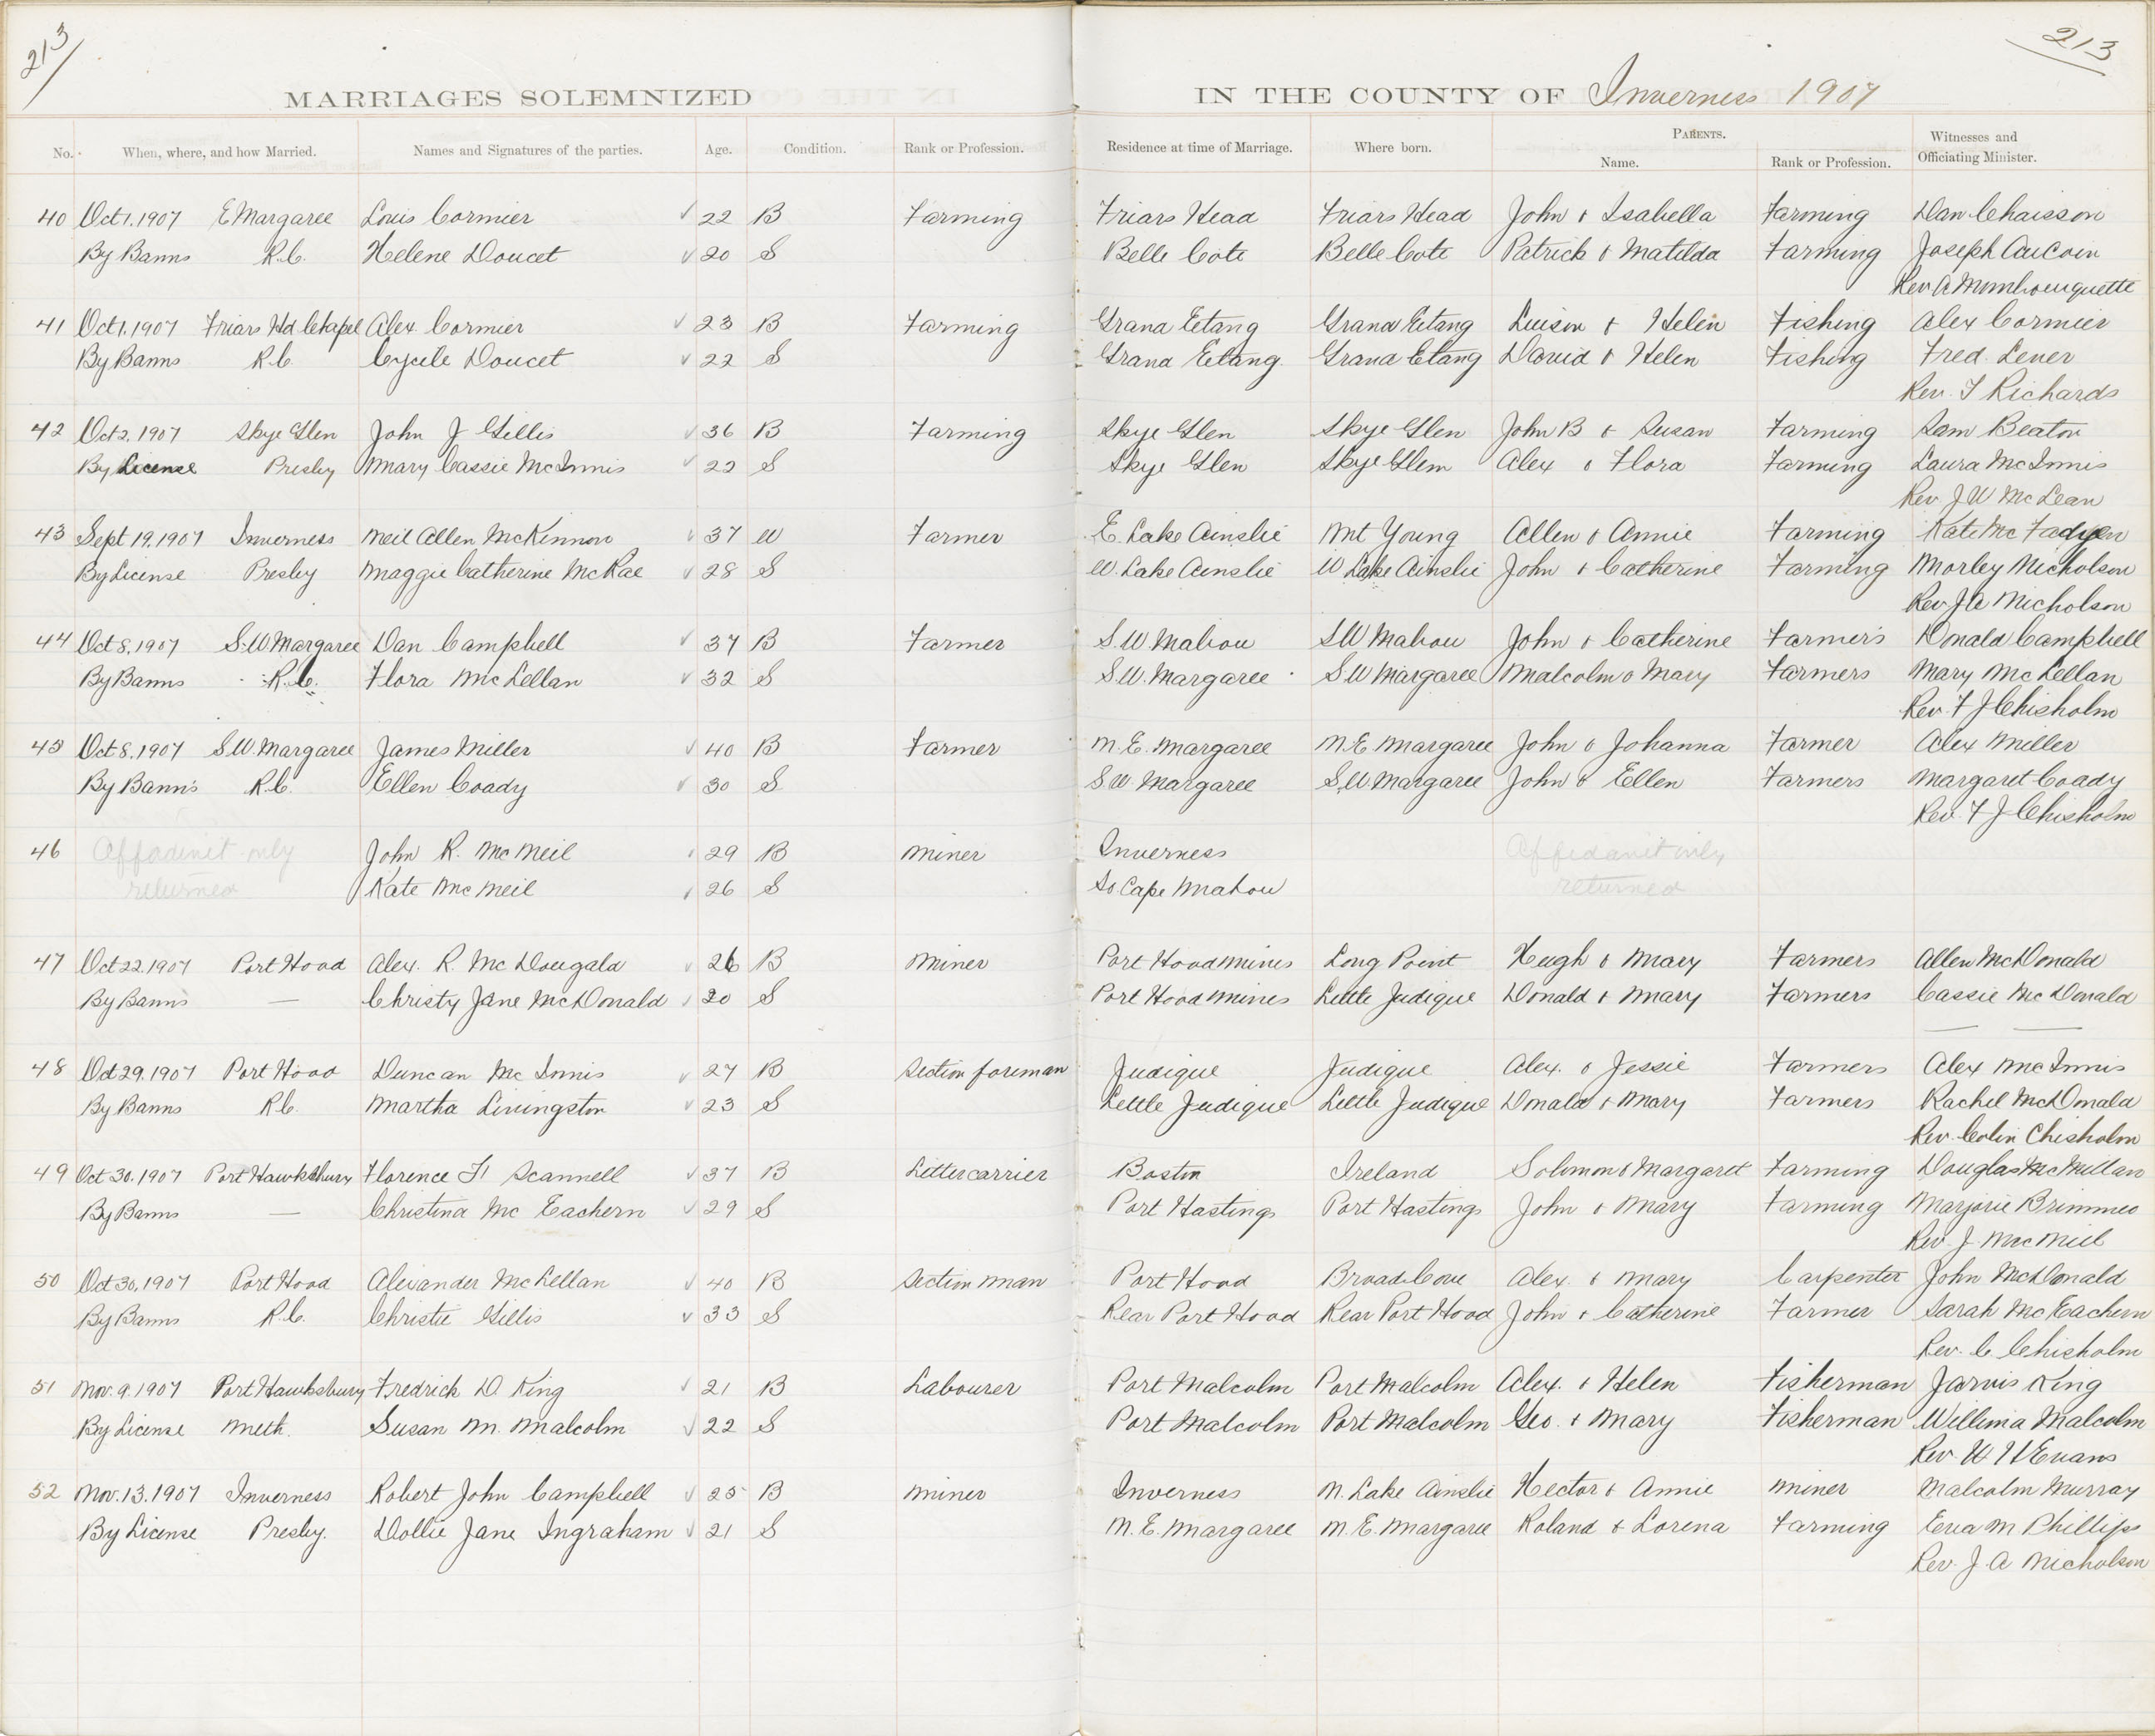 213
213
MARRIAGES SOLEMNIZED IN THE COUNTY OF Inverness 1907
No. When, where, and how Married. Names and Signatures of the parties. Age. Condition. Rank or Profession. Residence at time of Marriage. Where born. PARENTS. Name. Rank or Profession. Witnesses and Officiating Minister.
40 Oct 1. 1907 E Margaree Louis Cormier 22 B Farming Friars Head Friars Head John & Isabella Farming Dan Chaisson
By Banns R.C. Helene Doucet 20 S Belle Cote Belle Cote Patrick & Matilda Farming Joseph AuCoin
Rev A Mombourquette
41 Oct 1. 1907 Friars Hd Chapel Alex Cormier 23 B Farming Grand Eetang Grand Eetang & Helen Fishing Alex Cormier
By Banns R.C. Doucet 22 S Grand Eetang Grand Etang David & Helen Fishing Fred.
Rev. F Richards
42 Oct 2. 1907 Skye Glen John J Gillis 36 B Farming Skye Glen Skye Glen John B & Susan Farming Sam Beaton
By License Presby Mary Cassie McInnis 22 S Skye Glen Skye Glen Alex & Flora Farming Laura McInnis
Rev. J W McLean
43 Sept 19. 1907 Inverness Neil Allen McKinnon 37 W Farmer E. Lake Ainslie Mt Young Allen & Annie Farming Kate McFadyen
By License Presby Maggie Catherine McRae 28 S W. Lake Ainslie W Lake Ainslie John & Catherine Farming Morley Nicholson
Rev. J A Nicholson
44 Oct 8. 1907 S.W. Margaree Dan Campbell 37 B Farmer S.W Mabou SW Mabou John & Catherine Farmers Donald Campbell
By Banns R.C. Flora McLellan 32 S S.W. Margaree S W Margaree Malcolm & Mary Farmers Mary McLellan
Rev. F J Chisholm
45 Oct 8. 1907 S.W. Margaree James Miller 40 B Farmer N.E. Margaree N.E Margaree John & Johanna Farmer Alex Miller
By Banns R.C. Ellen Coady 30 S S.W. Margaree S.W. Margaree John & Ellen Farmers Margaret Coady
Rev. F J Chisholm
46 Affadavit only John R. McNeil 29 B Miner Inverness Affidavit only
returned Kate McNeil 26 S So. Cape Mabou returned
47 Oct 22. 1907 Port Hood Alex. R. McDougald 26 B Miner Port Hood Mines Long Point Hugh & Mary Farmers Allen McDonald
By Banns — Christy Jane McDonald 20 S Port Hood Mines Little Judique Donald & Mary Farmers Cassie McDonald
— —
48 Oct 29. 1907 Port Hood Duncan McInnis 27 B Section foreman Judique Judique Alex. & Jessie Farmers Alex McInnis
By Banns R.C. Martha Livingston 23 S Little Judique Little Judique Donald & Mary Farmers Rachel McDonald
Rev. Colin Chisholm
49 Oct 30. 1907 Port Hawksbury Florence F Scannell 37 B Letter carrier Boston Ireland Solomon & Margaret Farming Douglas McMillan
By Banns — Christina McEachern 29 S Port Hastings Port Hastings John & Mary Farming Marjorie
Rev. J. MacNeil
50 Oct 30. 1907 Port Hood Alexander McLellan 40 B Section man Port Hood Broad Cove Alex. & Mary Carpenter John McDonald
By Banns R.C. Christie Gillis 33 S Rear Port Hood Rear Port Hood John & Catherine Farmer Sarah McEachern
Rev. C Chisholm
51 Nov. 9. 1907 Port Hawksbury Fredrick D. King 21 B Labourer Port Malcolm Port Malcolm Alex. & Helen Fisherman Jarvis King
By License Meth. Susan M. Malcolm 22 S Port Malcolm Port Malcolm Geo. & Mary Fisherman Willima Malcolm
Rev. W H Evans
52 Nov. 13. 1907 Inverness Robert John Campbell 25 B Miner Inverness N. Lake Ainslie Hector & Annie Miner Malcolm Murray
By License Presby. Dollie Jane Ingraham 21 S N.E. Margaree N.E. Margaree Roland & Lorena Farming M Phillips
Rev. J. A Nicholson